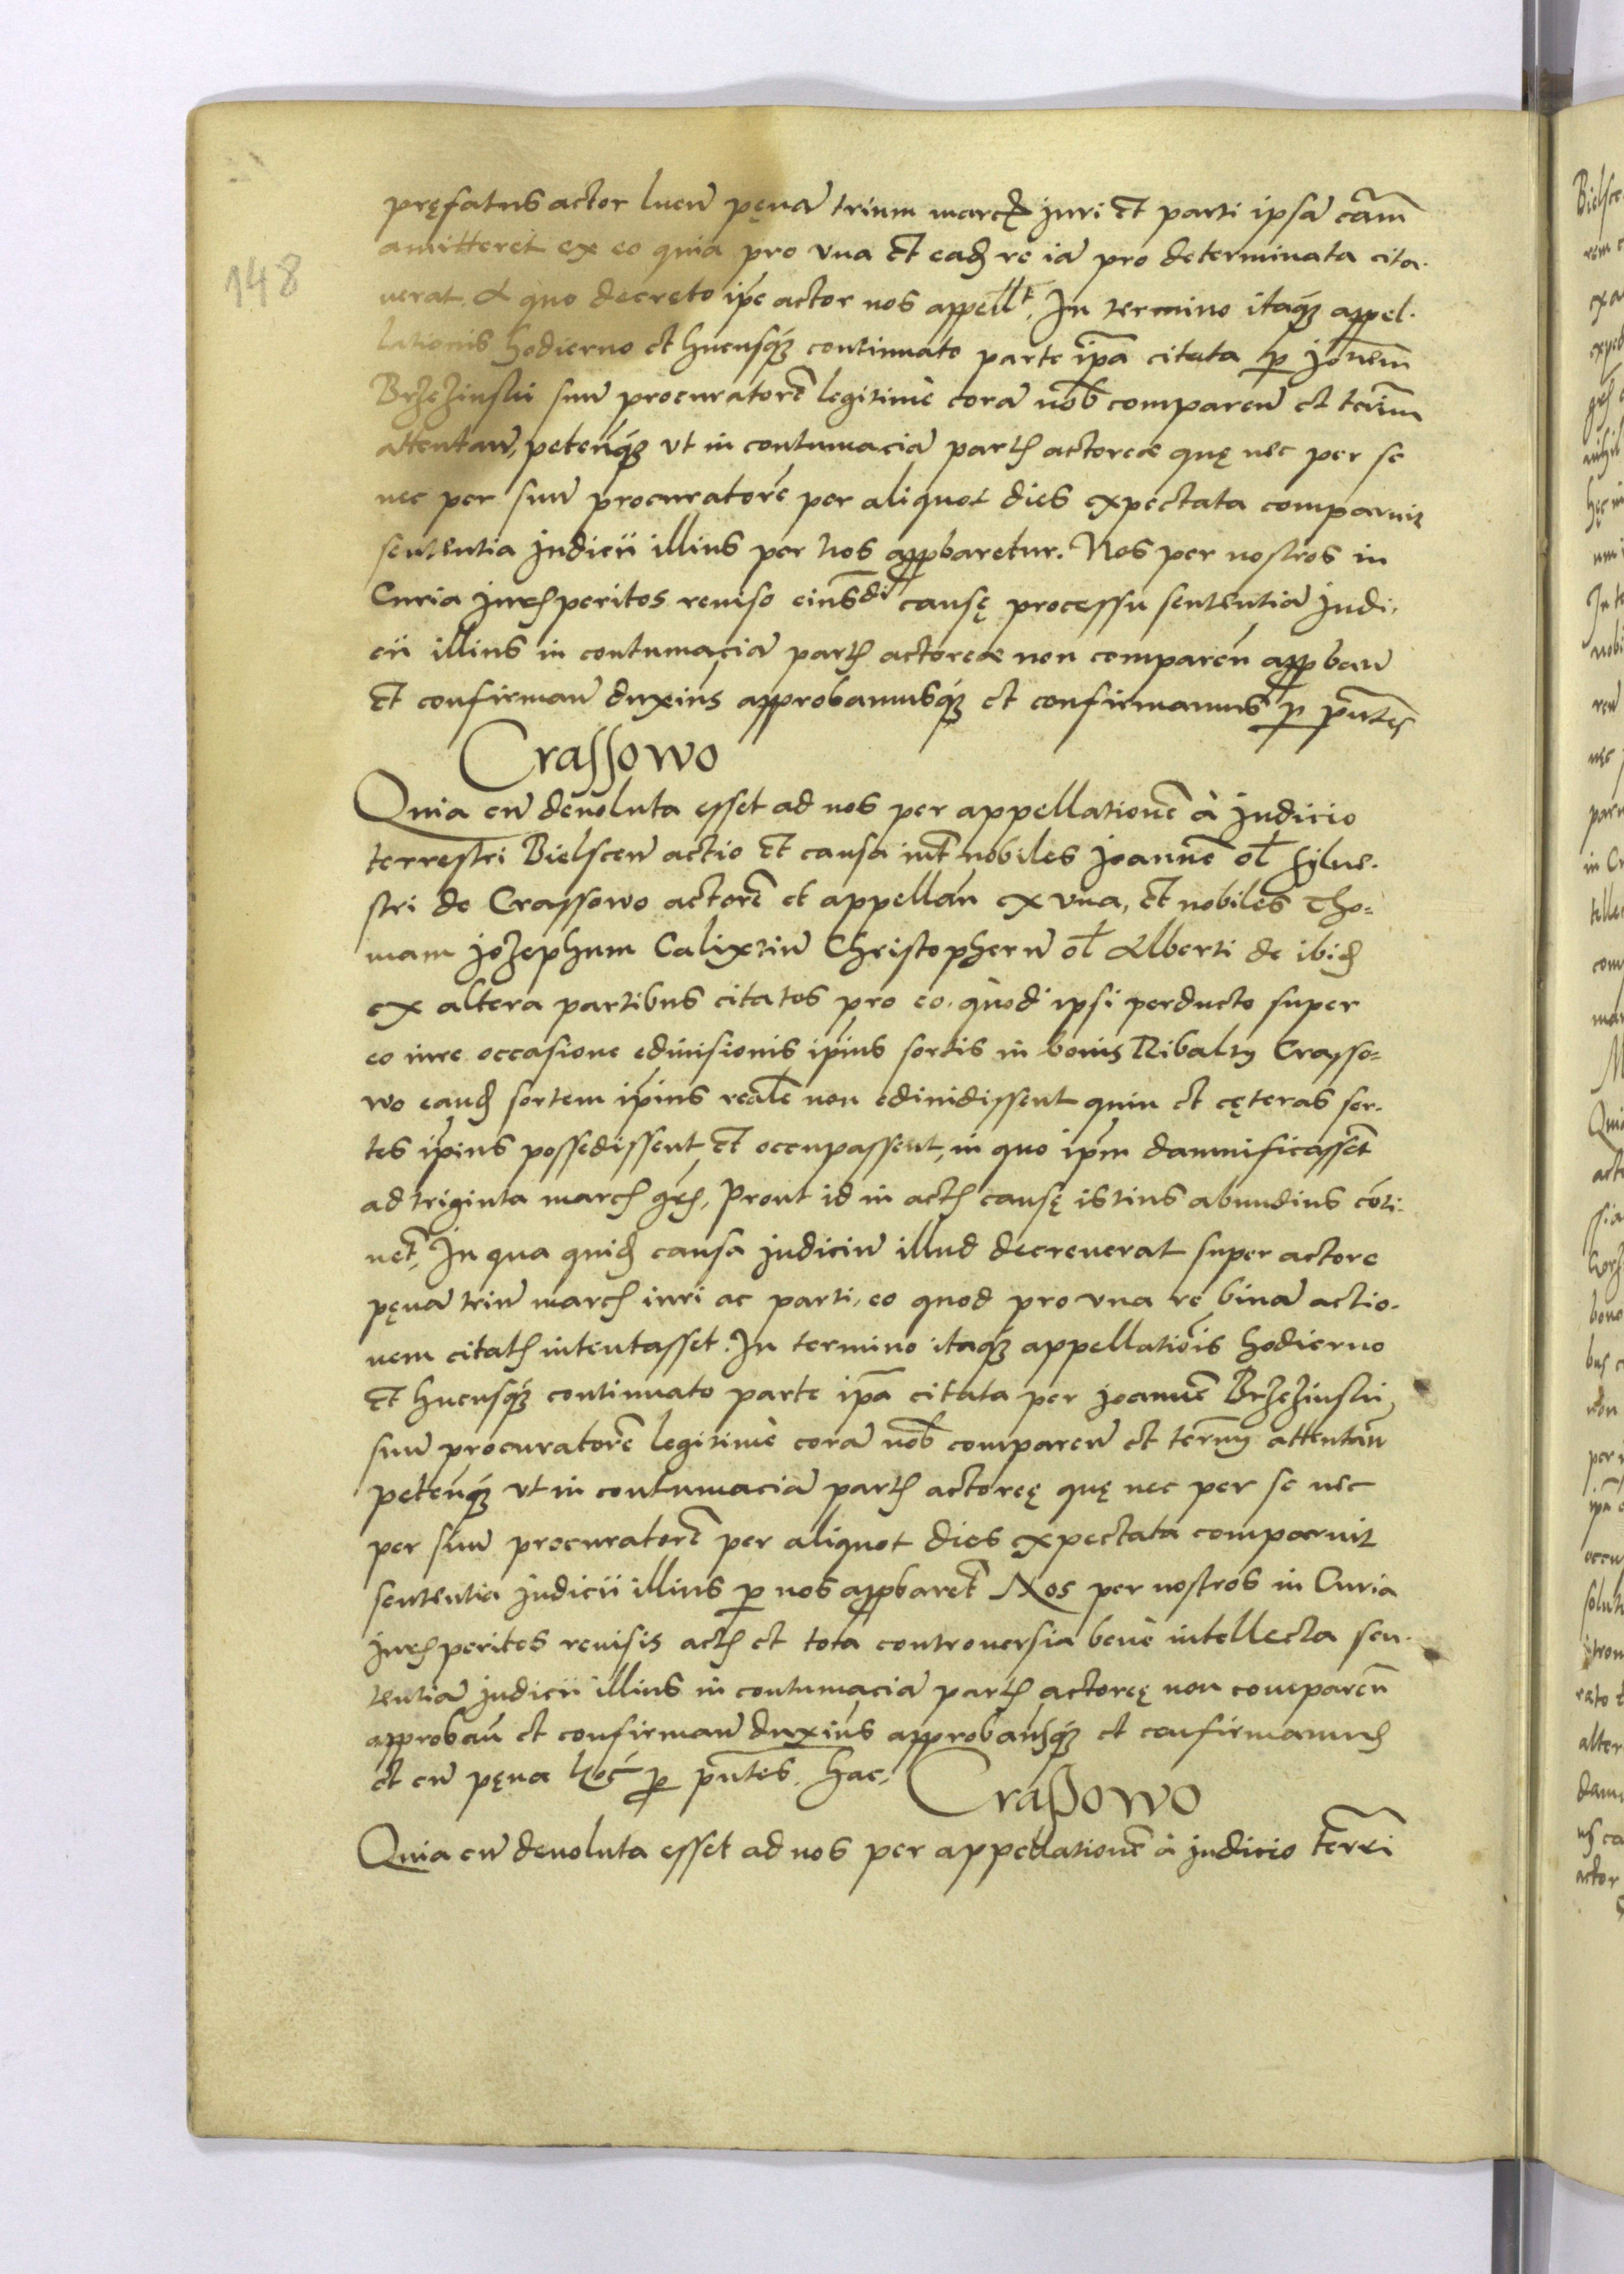 pręfatus actor lueret pęnā trium marcaꝝ juri et parti ipsā cām
148
amitteret ex eo quia pro vna et eadē re iā pro determinata cita-
uerat. A quo decreto ipē actor nos appellt. In termino itaqȝ appel-
lationis hodierno et hucusqȝ continuato parte ip̄a citata p̱ Joñem
Brzezinski suū procuratorē legitime corā nob̄ comparen̄ et term̄
attentan̄, petenqȝ vt in contumaciā partis actoreæ quę nec per se
nec per suū procuratorē per aliquot dies expectata comparuit
sententia judicii illius per nos appbaretur. Nos per nostros in
Curia juris peritos reuiso eiusdē causę processu sententiā judi-
cii illius in contumaciā partis actoreæ non comparen̄ appban̄
et confirman̄ duxim̄s approbamusqȝ et confirmamus p̱ p̄ntes
Crassowo
Quia cū deuoluta esset ad nos per appellationē à judicio
terrestri Bielscen̄ actio et causa int̄ nobiles Joannē ol̄ Silue-
stri de Crassowo actorē et appellan̄ ex vna, et nobiles Tho-
mam Jozephum Calixtū Christopherū ol̄ Alberti de ibidē
ex altera partibus citatos pro eo, quod ipsi perducto super
eo iure occasione ediuisionis ip̄ius sortis in bonis Ribalty Crasso-
wo eandē sortem ip̄ius realē non ediuidissent quin et cęteras sor-
tes ip̄ius possedissent et occupassent, in quo ip̄m damnificassēt
ad triginta marcas gēs, Prout id in actis causę istius abundius cōti-
net̄, In qua quidē causa judiciū illud decreuerat super actore
pęnā triū marcas iuri ac parti, eo quod pro vna re binā actio-
nem citatis intentasset. In termino itaqȝ appellatiōis hodierno
et hucusqȝ continuato parte ip̄a citata per Joannē Brzezinski
suū procuratorē legitime corā nob̄ comparen̄ et term̄ attentan̄
petenqȝ vt in contumaciā partis actoreę quę nec per se nec
per suū procuratorē per aliquot dies expectata comparuit
sententia judicii illius p̱ nos appbaret̄ Nos per nostros in Curia
juris peritos reuisis actis et tota controuersia bene intellecta sen-
tentiā judicii illius in contumaciā partis actoreę non comparen̄
approban̄ et confirman̄ duxim̄s approbam̄sqȝ et confirmamus
et cū pęna p̱ p̄ntes. hac,
Craßowo
Quia cū deuoluta esset ad nos per appellationē à judicio terrri